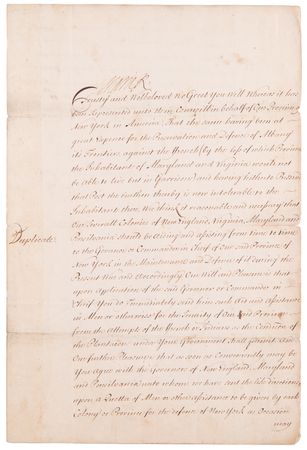 Marie R
Trusty and Welbeloved We Greet You well Whereas it has
been represented unto Us in Councill on behalf of Our Province of
New York in America That the same having been at
great Expence for the Preservation and Defence of Albany
its Frontier against the French (by the loss of which Province
the Inhabitants of Maryland and Virginia would not
be able to live but in Garrison) and having hitherto Preserved
that Post the burthen thereby is now intolerable to the
Inhabitants there We think it reasonable and necessary that
Our severall Colonies of New England, Virginia, Maryland and
Pensilvania should be aiding and assisting from time to time
to the Governor or Commander in Chief of Our said Province of
Duplicate.
New York in the Maintenance and Defence of it during the
Present War and Accordingly Our Will and Pleasure is that
upon application of the said Governor or Commander in
Chief You do Immediately send him such Aid and Assistance
in Men or otherwise for the Security of Our said Province
from the Attempts of the French or Indians as the Condition of
the Plantation under Your Government shall permit And
Our further Pleasure is that as soon as Conveniently may be
You agree with the Governors of New England, Maryland
and Pensilvania unto whom we have sent the like directions
upon a Quota of Men or other assistance to be given by each
Colony or Province for the defence of New York as Occasion
may